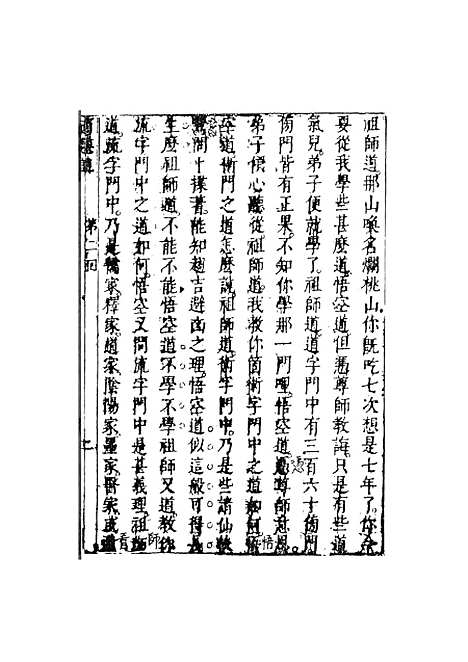 祖師道那山喚名爛桃山你既吃七次想是七年了你今
要從我學些甚麼道悟空道但憑尊師教誨只是有些道
氣兒弟子便就學了祖師道道字門中有三百六十傍門
傍門皆有正果不知你學那一門哩悟空道憑尊師意思
弟子傾心聽從祖師道我教你箇術字門中之道如何悟
空道術門之道怎麼說祖師道術字門中乃是些請仙扶
鸞問卜揲蓍能知趨吉避凶之理悟空道似這般可得長
生麼祖師道不能不能悟空道不學不學祖師又道教你
流字門中之道如何悟空又問流字門中是甚義理祖師
道流字門中乃是儒家釋家道家陰陽家墨家醫家或看
第二回
二